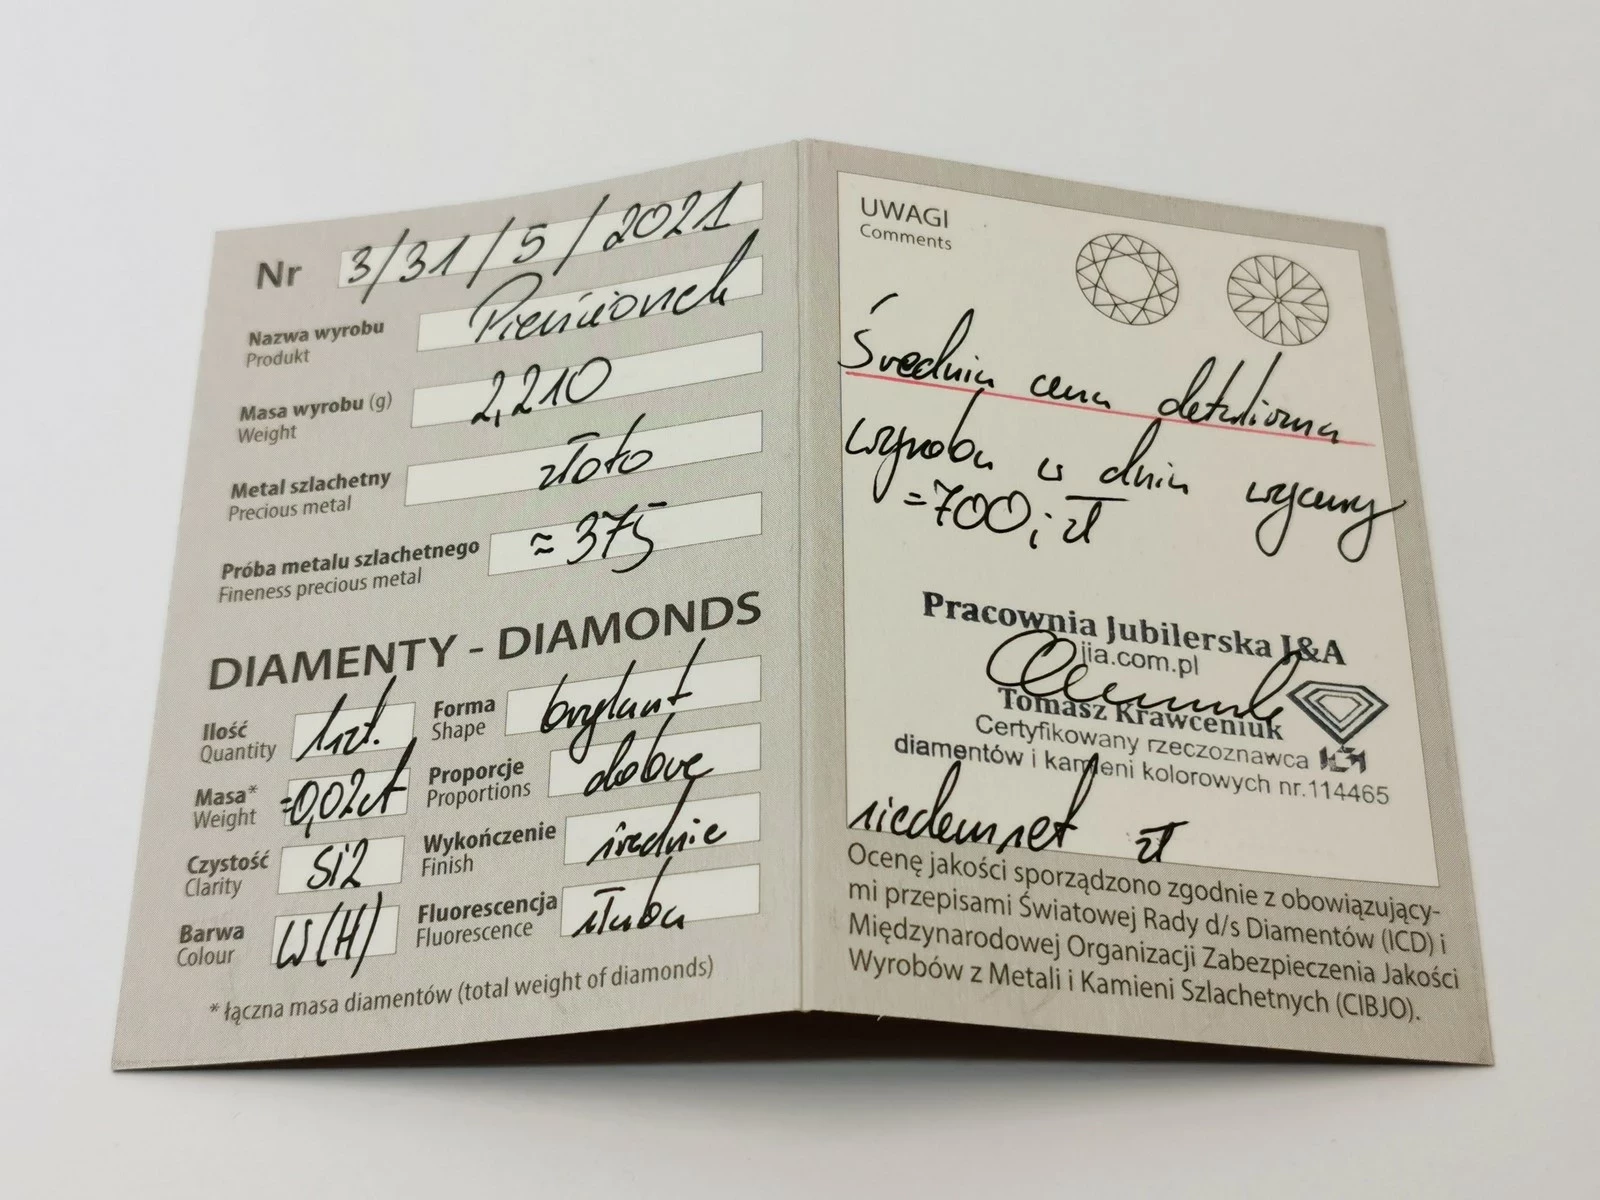 Nr 3/31/5/2021
Nazwa wyrobu Pierścionek
Produkt
Masa wyrobu (g) 2,210
Weight
Metal szlachetny złoto
Precious metal
Próba metalu szlachetnego ≈ 375
Fineness precious metal
DIAMENTY - DIAMONDS
Ilość 1szt. Forma brylant
Quantity Shape
Masa* =0,02ct Proporcje dobre
Weight Proportions
Czystość SI2 Wykończenie średnie
Clarity Finish
Barwa W(H) Fluorescencja słaba
Colour Fluorescence
* łączna masa diamentów (total weight of diamonds)
UWAGI
Comments
Średnia cena detaliczna
wyrobu w dniu wyceny
=700,- zł
Pracownia Jubilerska J&A
jia.com.pl
Tomasz Krawceniuk
Certyfikowany rzeczoznawca
diamentów i kamieni kolorowych nr.114465
siedemset zł
Ocenę jakości sporządzono zgodnie z obowiązujący-
mi przepisami Światowej Rady d/s Diamentów (ICD) i
Międzynarodowej Organizacji Zabezpieczenia Jakości
Wyrobów z Metali i Kamieni Szlachetnych (CIBJO).